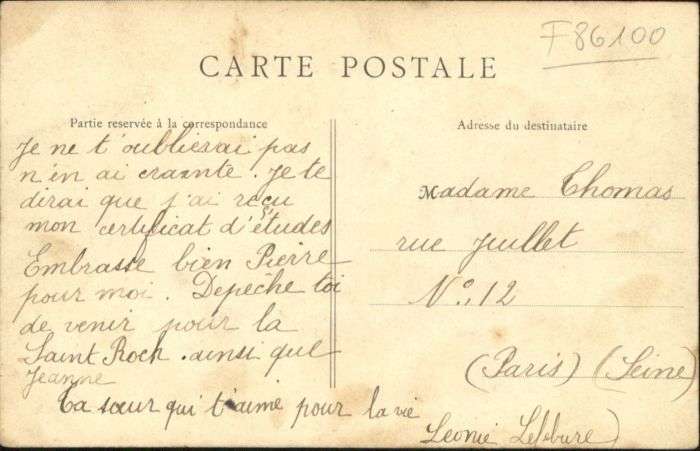 F86100
CARTE POSTALE
Partie reservée à la correspondance
Je ne t'oublierai pas
n'en ai crainte. Je te
dirai que j'ai reçu
mon certificat d'études
Embrasse bien Pierre
pour moi. Depêche toi
de venir pour la
Saint Roch. ainsi que
Jeanne
Ta sœur qui t'aime pour la vie
Leonie Lefebure)
Adresse du destinataire
Madame Thomas
rue Juillet
No. 12
(Paris) (Seine)